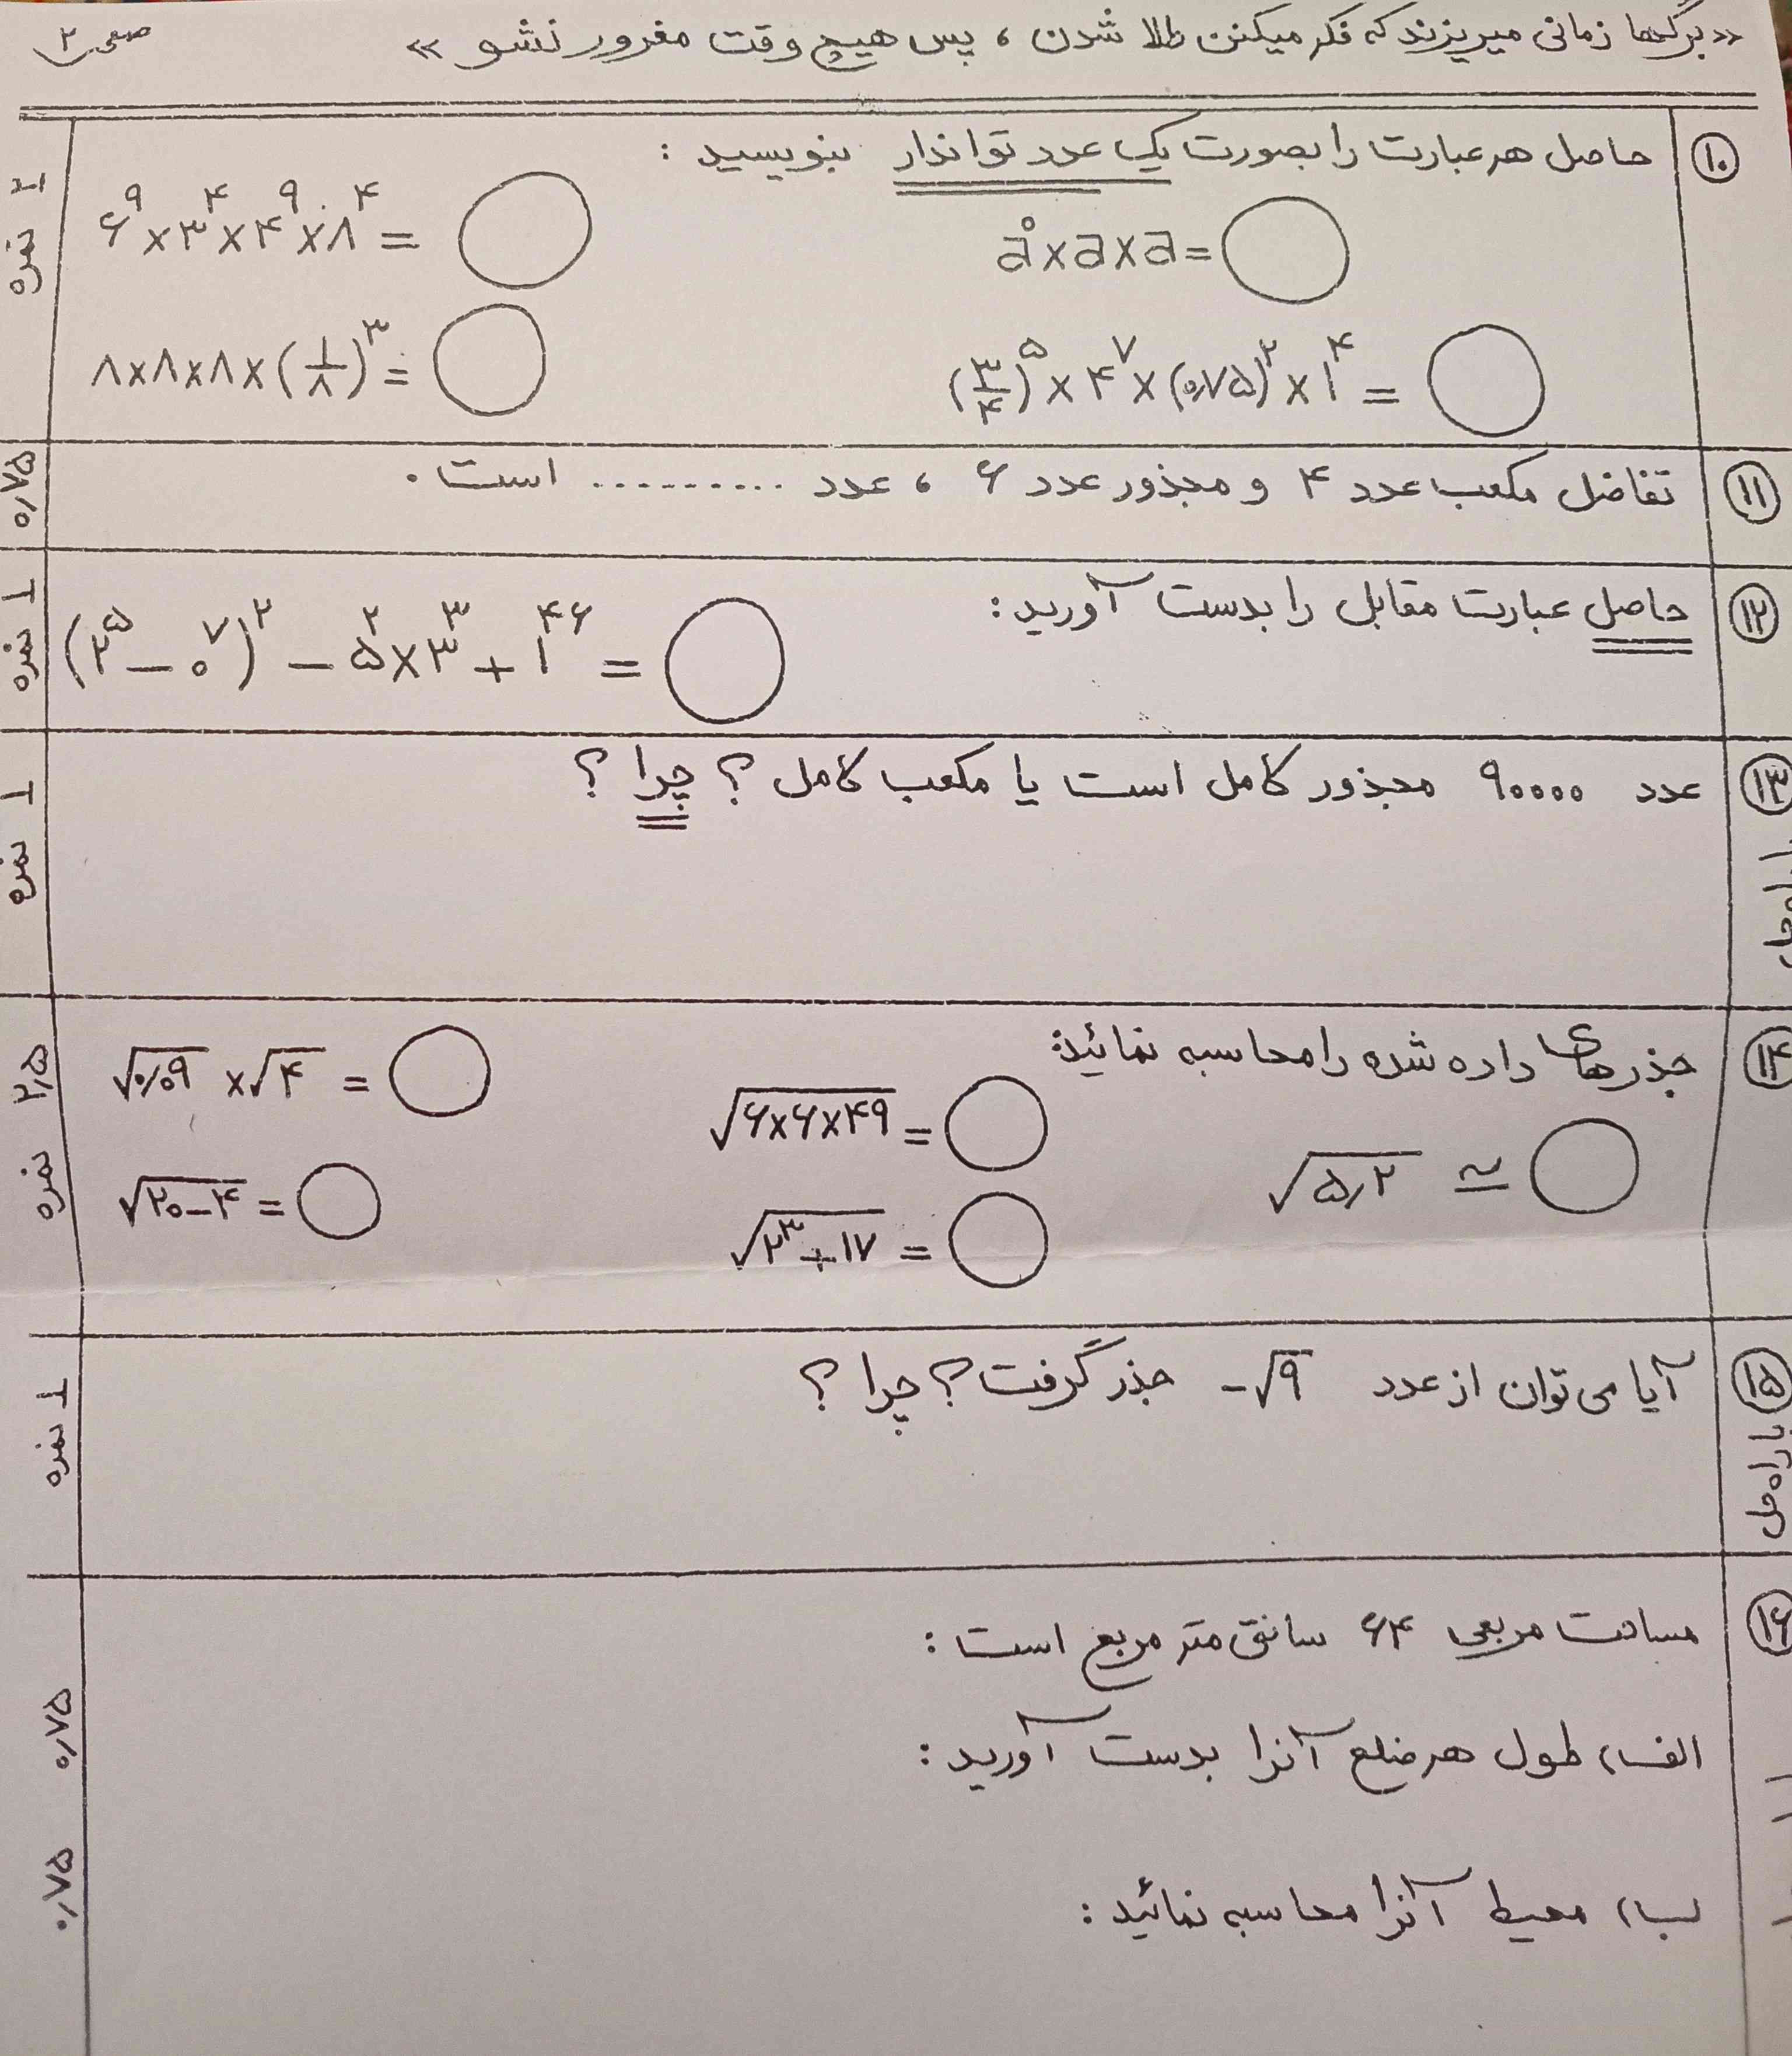 «برگ‌ها زمانی میریزند که فکر میکنن طلا شدن ، پس هیچ وقت مغرور نشو» صفحه ۲
۱۰ حاصل هر عبارت را بصورت یک عدد تواندار بنویسید :
۲ نمره
a° × a × a =
۶^۹ × ۳^۴ × ۴^۹ × ۸^۴ =
(۳/۴)^۵ × ۴^۷ × (۰٫۷۵)^۲ × ۱^۴ =
۸×۸×۸×(۱/۸)^۳ =
۱۱ تفاضل مکعب عدد ۴ و مجذور عدد ۶ ، عدد .......... است . ۰٫۷۵
۱۲ حاصل عبارت مقابل را بدست آورید :
(۲^۵ - ۰^۷)^۲ - ۵^۲ × ۳^۳ + ۱^۴۶ = ۱ نمره
۱۳ عدد ۹۰۰۰۰ مجذور کامل است یا مکعب کامل ؟ چرا ؟ ۱ نمره
با راه حل
۱۴ جذرهای داده شده را محاسبه نمائید: ۲٫۵ نمره
√۵٫۲ ≃
√(۶×۶×۴۹) =
√۰٫۰۹ × √۴ =
√(۲^۳+۱۷) =
√(۲۰-۴) =
۱۵ آیا می توان از عدد -√۹ جذر گرفت ؟ چرا ؟ ۱ نمره
با راه حل
۱۶ مساحت مربعی ۶۴ سانتی متر مربع است :
الف) طول هر ضلع آنرا بدست آورید : ۰٫۷۵
ب) محیط آنرا محاسبه نمائید : ۰٫۷۵